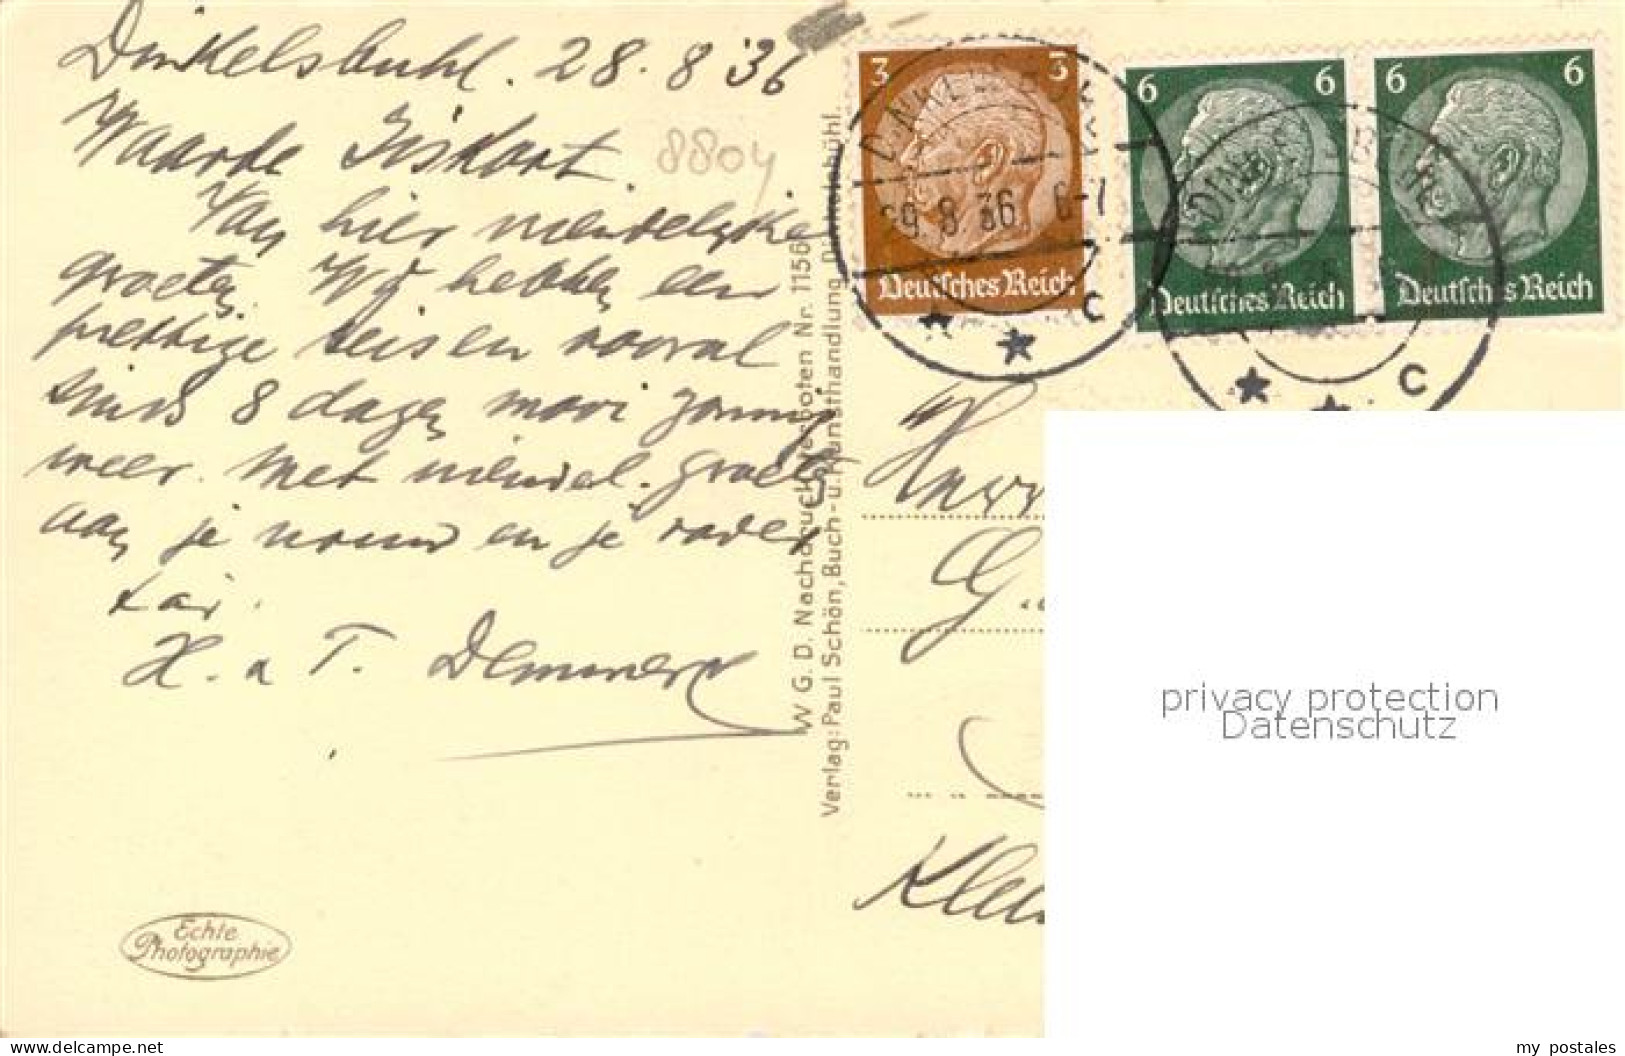 Dinkelsbuhl. 28.8'36
Waarde
8804
Van hier vriendelijke
groeten. Wij hebben een
prettige reis en vooral
sinds 8 dagen mooi zonnig
weer. Met vriendel. groeten
aan je vrouw en je
H. a T.
W G. D. Nachdruck verboten Nr. 1156
Verlag: Paul Schön, Buch- u. Kunsthandlung, Dinkelsbühl.
Echte
Photographie
3 3
Deutsches Reich
6 6
Deutsches Reich
6 6
Deutsches Reich
29.8.36 6-7
C
C
privacy protection
Datenschutz
my postales
www.delcampe.net